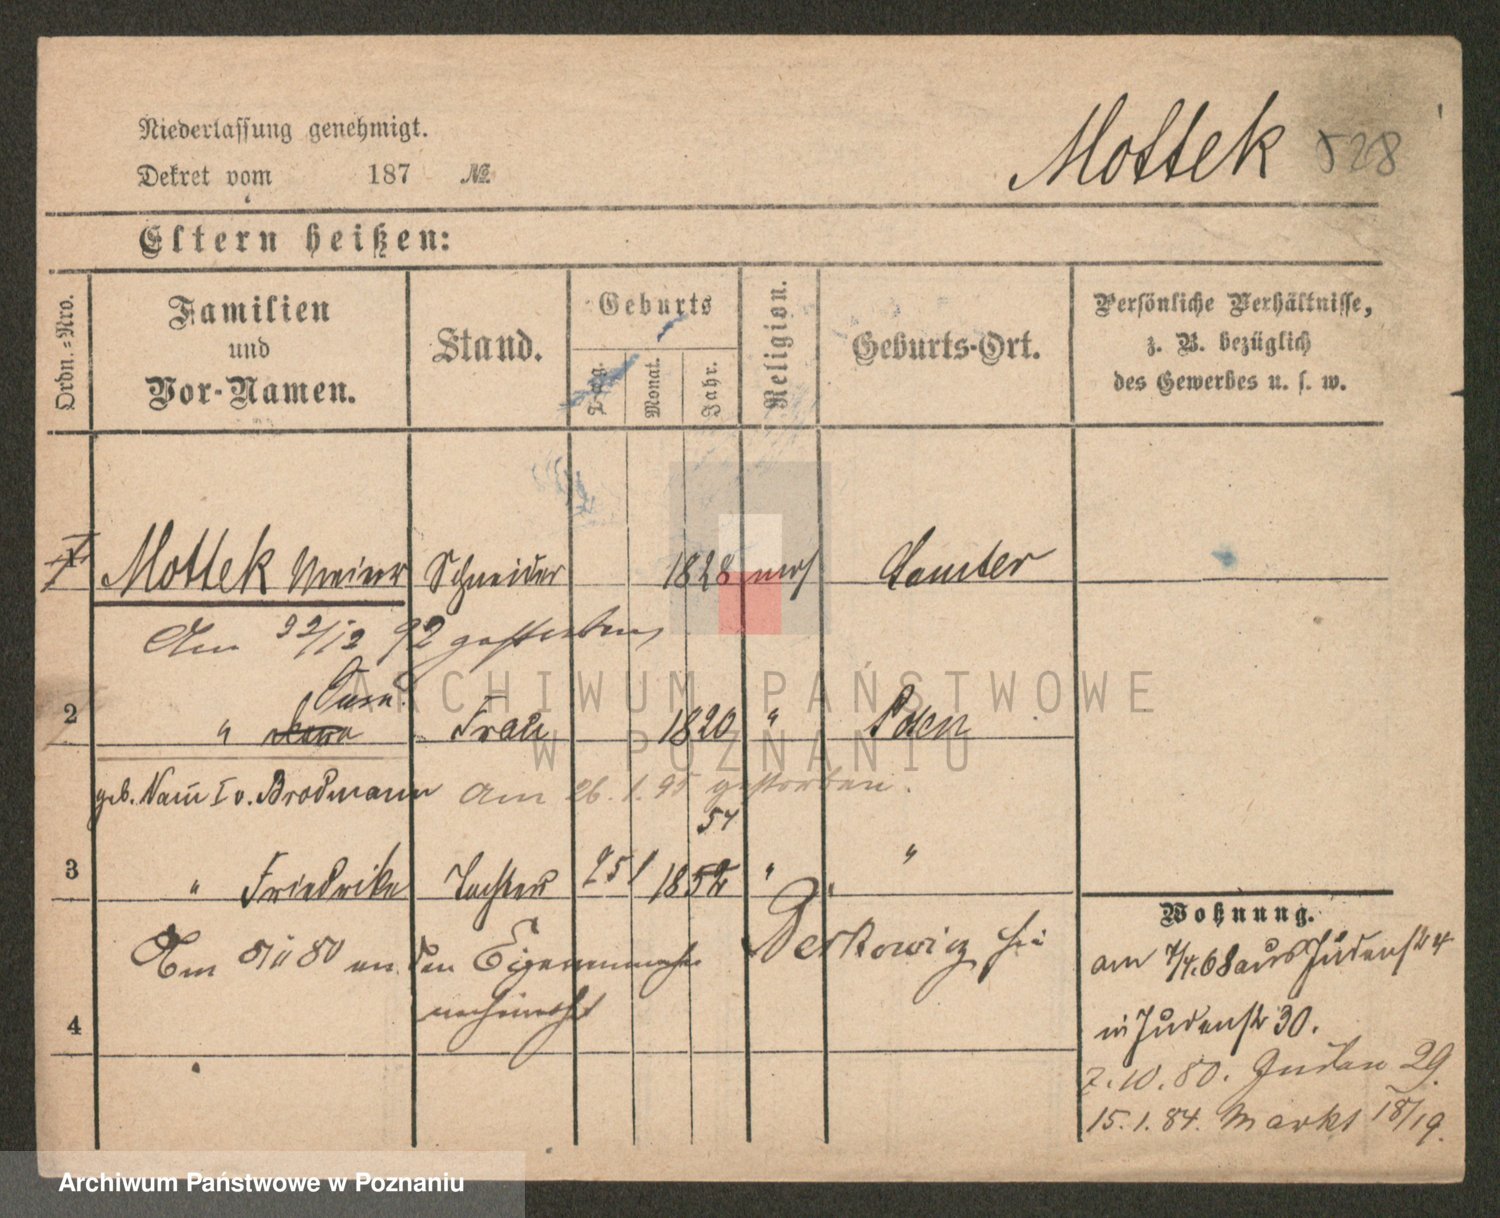 Niederlassung genehmigt.
Dekret vom 187 №.
Mottek 528
Eltern heißen:
Ordn.-Nro.
Familien
und
Vor-Namen.
Stand.
Geburts
Tag.
Monat.
Jahr.
Religion.
Geburts-Ort.
Persönliche Verhältnisse,
z. B. bezüglich
des Gewerbes u. s. w.
1 Mottek Meier Schneider 1828 mos Samter
Am 22/12 92 gestorben
2 " Frau 1820 " Posen
geb. I v. Brodmann Am 26.1.95 gestorben.
54
3 " Friedrike Tochter 25 1 1852 " "
Am 8/11 80 an den Berkowicz
4
Wohnung.
am 7/4.68 aus Judenstr 4
in Judenstr 30.
7.10.80. Juden 29.
15.1.84. Markt 18/19.
ARCHIWUM PAŃSTWOWE
W POZNANIU
Archiwum Państwowe w Poznaniu